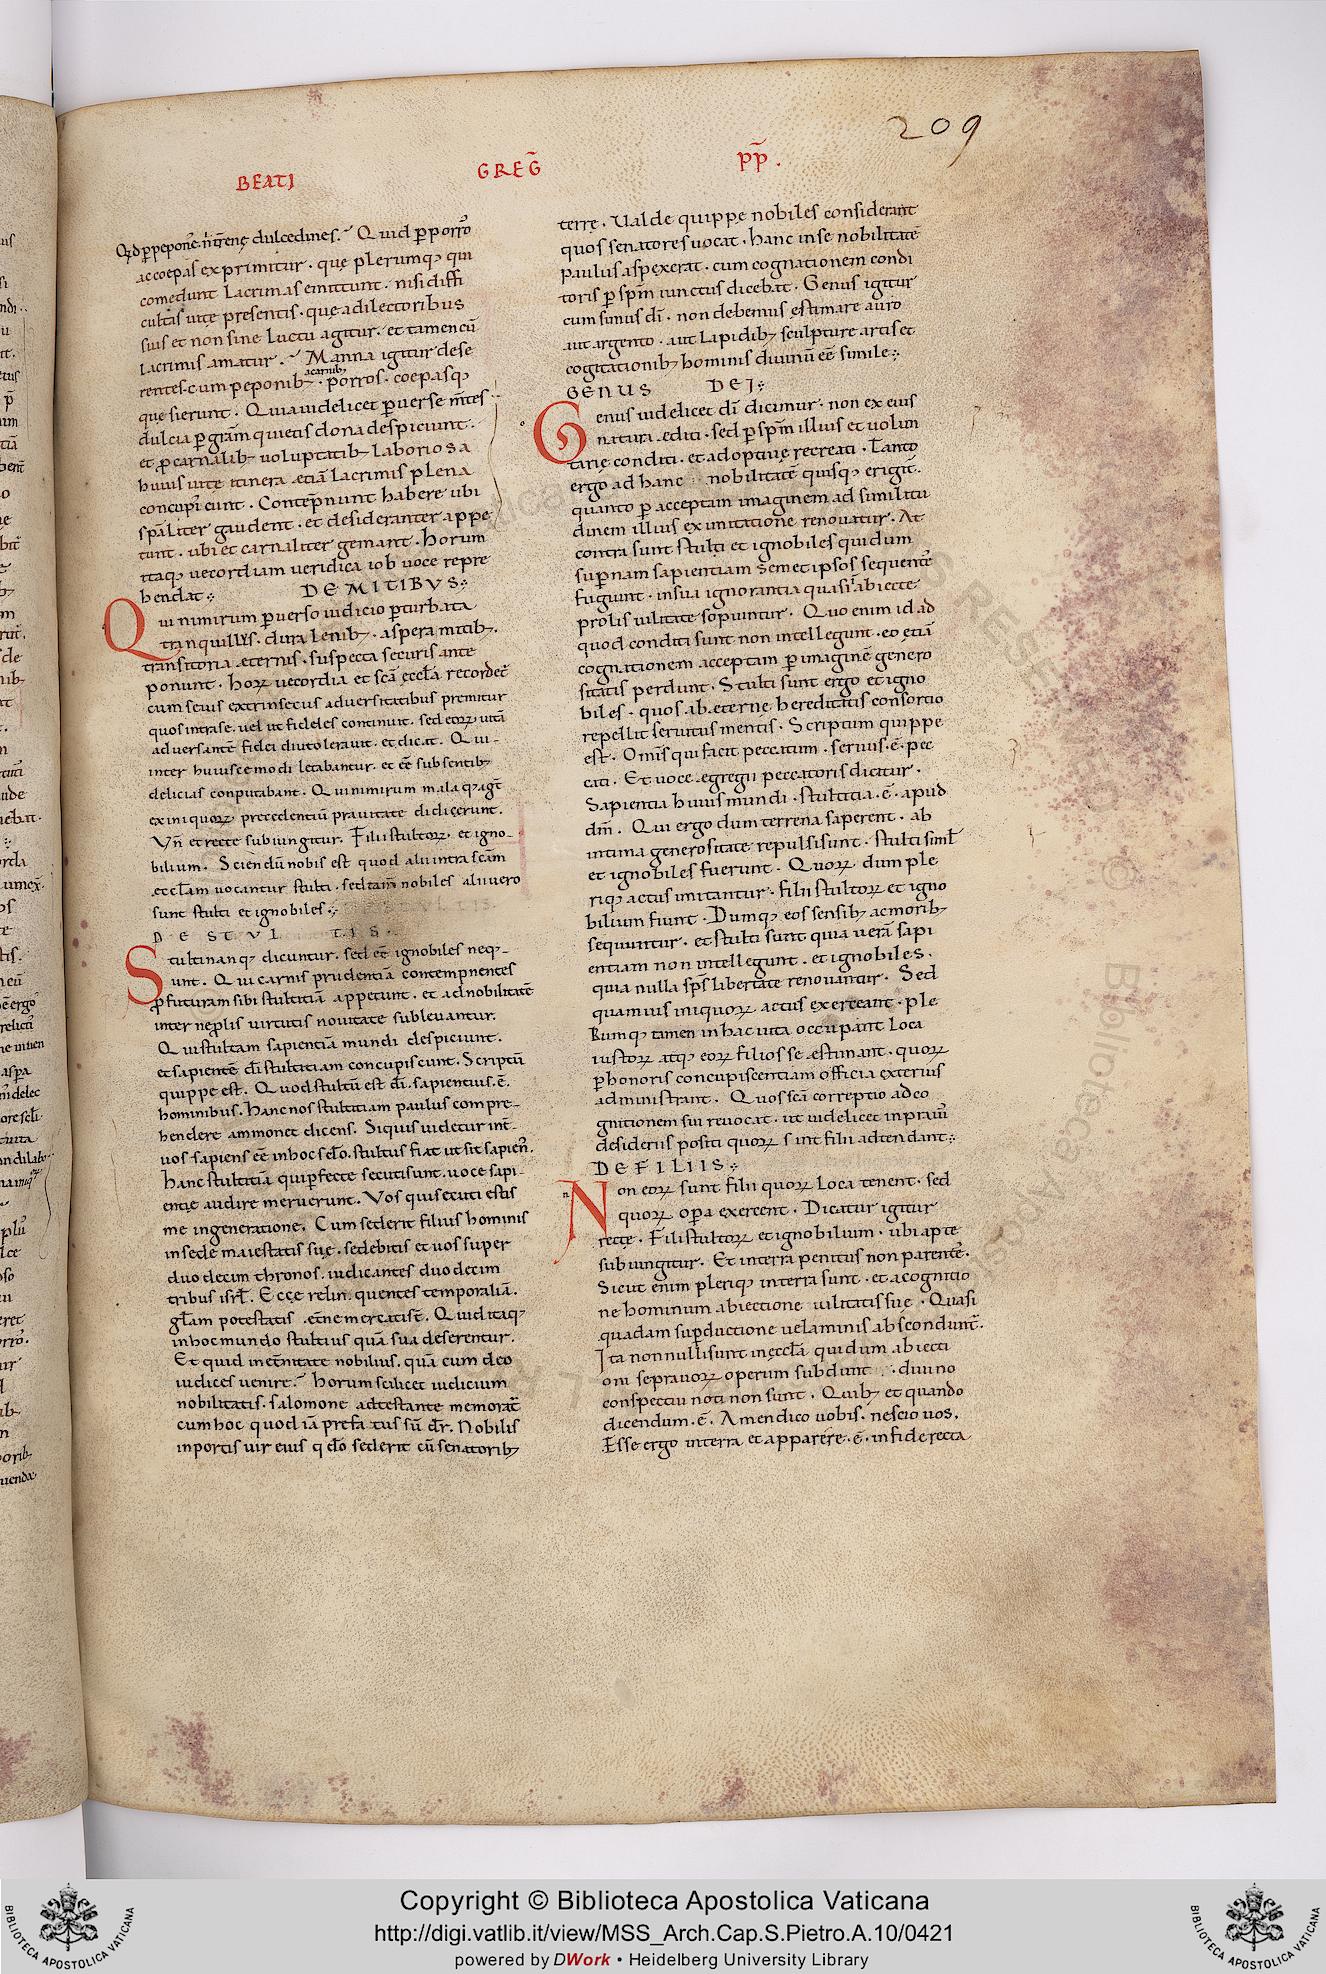 209
BEATI GREG̃ PP̃.
Qd p peponẽ. n̄ t̄renę dulcedines. Quid p porrõ
ac coepas exprimitur. quę plerumq; qui
comedunt lacrimas emittunt. nisi diffi
cultas uitę presentis. quę a dilectoribus
suis et non sine luctu agitur. et tamen cũ
lacrimis amatur. Manna igitur dese
rentes. cum peponib; acarnib; porros. coepasq;
quęsierunt. Quia uidelicet puerse m̃tes
dulcia p gr̃am quietis dona despiciunt.
et p carnalib; uoluptatib; laboriosa
huius uitę itinera etiã lacrimis plena
concupiscunt. Contẽpnunt habere ubi
sp̃aliter gaudent. et desideranter appe
tunt. ubi et carnaliter gemant. horum
itaq; uecordiam ueridica iob uoce repre
hendat DE MITIBVS
Qui nimirum puerso iudicio pturbata
tranquillis. dura lenib;. aspera mitib;.
transitoria eternis. suspecta securis ante
ponunt. hor̃ uecordia et sc̃a ęccl̃a recordet̃
cum seius extrinsecus aduersitatibus premitur
quos intra se. uel ut fideles continuit. sed eor̃ uitã
aduersantẽ fidei diu tolerauit. et dicat. Qui
inter huiuscemodi letabantur. et eẽ sub sentib;
delicias conputabant. Qui nimirum mala q; agt̃
ex iniquor̃ precedentiũ prauitate didicerunt.
Vñ et recte subiungitur. Filii stultor̃ et igno
bilium. Sciendũ nobis est quod alii intra sc̃am
eccl̃am uocantur stulti. sed tam̃ nobiles alii uero
sunt stulti et ignobiles
DE STVLTIS.
Stulti nanq; dicuntur. sed eẽ ignobiles neq;
unt. Qui carnis prudentiã contempnentes
pfuturam sibi stultitiã appetunt. et ad nobilitatẽ
inter nę plis uirtutis nouitate subleuantur.
Qui stultam sapientiã mundi despiciunt.
et sapientẽ dĩ stultitiam concupiscunt. Scriptũ
quippe est. Quod stultũ est dĩ. sapientius. ẽ.
hominibus. hanc nos stultitiam paulus compre
hendere ammonet dicens. Siquis uidetur int̃
uos sapiens eẽ in hoc scl̃o. stultus fiat ut sit sapieñ.
hanc stultitiã qui pfecte secuti sunt. uoce sapi
entię audire meruerunt. Vos qui secuti estis
me in generatione. Cum sederit filius hominis
in sede maiestatis suę. sedebitis et uos super
duodecim thronos. iudicantes duodecim
tribus isrl̃. Ecce relinquentes temporaliã.
gl̃am potestatis ẽtne mercatis ẽ. Quid itaq;
in hoc mundo stultius quã sua deserentur.
Et quid in et̃nitate nobilius. quã cum deo
iudices uenire. horum scilicet iudicium
nobilitatis. salomone adtestante memorat̃
cum hoc quod iã prefatus sũ dr̃. Nobilis
in portis uir eius qdo sederit cũ senatorib;
terrę. Ualde quippe nobiles considerant
quos senatores uocat. hanc in se nobilitatẽ
paulus aspexerat. cum cognationem condi
toris p sp̃m iunctus dicebat. Genus igitur
cum simus dĩ. non debemus ęstimare auro
aut argento. aut lapidib; sculpture artis et
cogitationib; hominis diuinũ eẽ simile
GENUS DEI
Genus uidelicet dĩ dicimur. non ex eius
natura editi. sed p sp̃m illius et uolun
tarię conditi. et adoptiuę recreati. Tanto
ergo ad hanc nobilitatẽ quisq; erigit̃.
quanto p acceptam imaginem ad similitu
dinem illius ex imitatione renouatur. At
contra sunt stulti et ignobiles qui dum
sup̃nam sapientiam semet ipsos sequentẽ
fugiunt. in sua ignorantia quasi ab iecte
prolis uilitate sopiuntur. Quo enim id ad
quod conditi sunt non intellegunt. eo etiã
cognationem acceptam p imaginẽ genero
sitatis perdunt. Stulti sunt ergo et igno
biles. quos ab eterne hereditatis consortio
repellit seruitus mentis. Scriptum quippe
est. Omĩs qui facit peccatum. seruus. ẽ. pec
cati. Et uoce egregii peccatoris dicitur.
Sapientia huius mundi. stultitia. ẽ. apud
dm̃. Qui ergo dum terrena saperent. ab
intima generositate repulsi sunt. stulti simł
et ignobiles fuerunt. Quor̃ dum ple
riq; actus imitantur. filii stultor̃ et igno
bilium fiunt. Dumq; eos sensib; ac morib;
sequuntur. et stulti sunt quia uerã sapi
entiam non intellegunt. et ignobiles.
quia nulla sp̃s libertate renouantur. Sed
quamuis iniquor̃ actus exerceant. ple
Rumq; tamen in hac uita occupant loca
iustor̃ atq; eor̃ filios se ęstimant. quor̃
p honoris concupiscentiam officia exterius
administrant. Quos sc̃a correptio ad co
gnitionem sui reuocat. ut uidelicet in prauis̃
desideriis positi quor̃ sint filii adtendant
DE FILIIS
Non eor̃ sunt filii quor̃ loca tenent. sed
quor̃ opa exercent. Dicatur igitur
recte. Filii stultor̃ et ignobilium. ubi apte
subiungitur. Et in terra penitus non parentẽ.
Sicut enim pleriq; in terra sunt. et a cognitio
ne hominum abiectione uilitatis suę. Quasi
quadam supductione uelaminis abscondunt̃.
Ita nonnulli sunt in ęccl̃a qui dum abiecti
oni se prauor̃ operum subdunt. diuino
conspectui noti non sunt. Quib; et quando
dicendum. ẽ. Amen dico uobis. nescio uos.
Esse ergo in terra et apparere. ẽ. in fide recta
Copyright © Biblioteca Apostolica Vaticana
http://digi.vatlib.it/view/MSS_Arch.Cap.S.Pietro.A.10/0421
powered by DWork • Heidelberg University Library